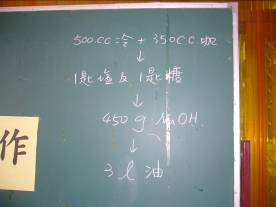 500.CC 冷 + 350CC 咖
↓
1匙鹽及1匙糖
↓
450g NaOH
↓
3l 油
作